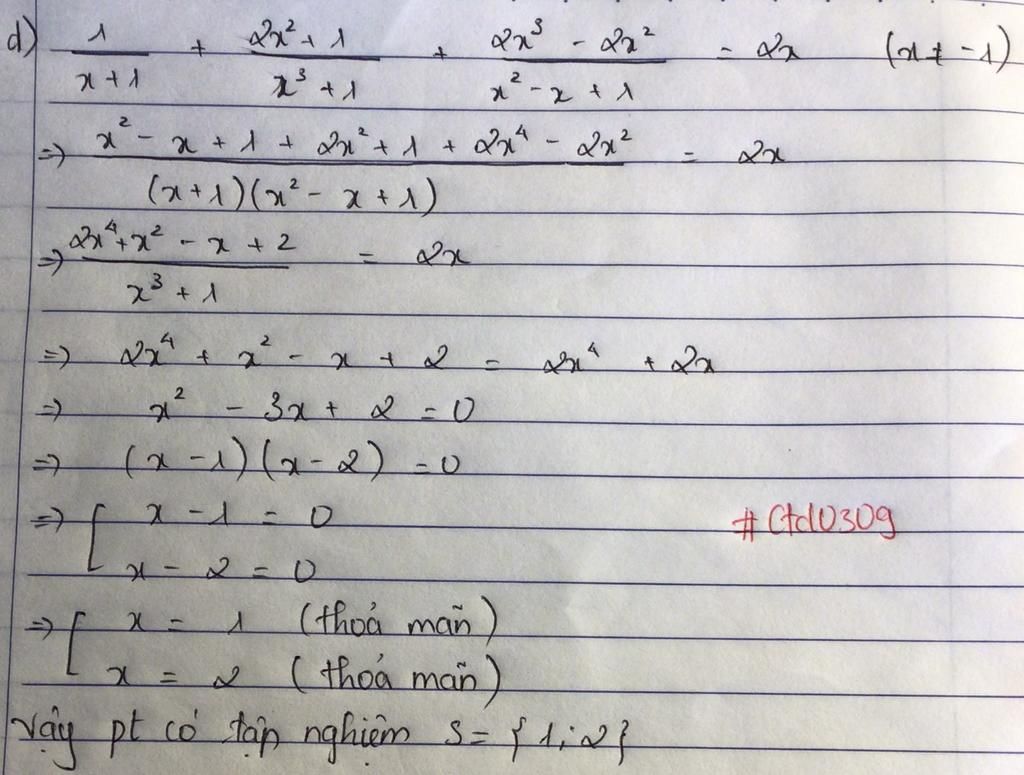 d) 1/(x+1) + (2x²+1)/(x³+1) + (2x³ - 2x²)/(x² - x + 1) = 2x (x ≠ -1)
=> (x² - x + 1 + 2x² + 1 + 2x⁴ - 2x²)/((x+1)(x² - x + 1)) = 2x
=> (2x⁴ + x² - x + 2)/(x³ + 1) = 2x
=> 2x⁴ + x² - x + 2 = 2x⁴ + 2x
=> x² - 3x + 2 = 0
=> (x - 1)(x - 2) = 0
=> [ x - 1 = 0
x - 2 = 0
#Ctd0309
=> [ x = 1 (thoả mãn)
x = 2 (thoả mãn)
Vậy pt có tập nghiệm S = {1; 2}